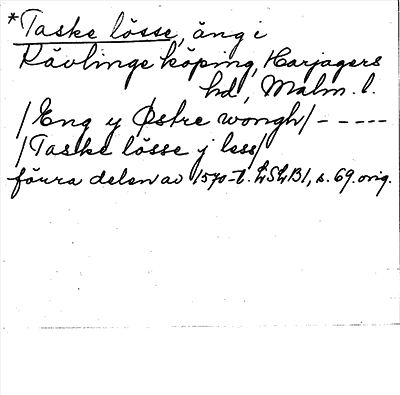 *Taske lösse, äng i
Kävlinge köping, Harjagers
hd, Malm. l.
/Eng y Østre wongh/ - - - - -
/Taske lösse j less/
förra delen av 1570-t. LSLB1, s. 69. orig.